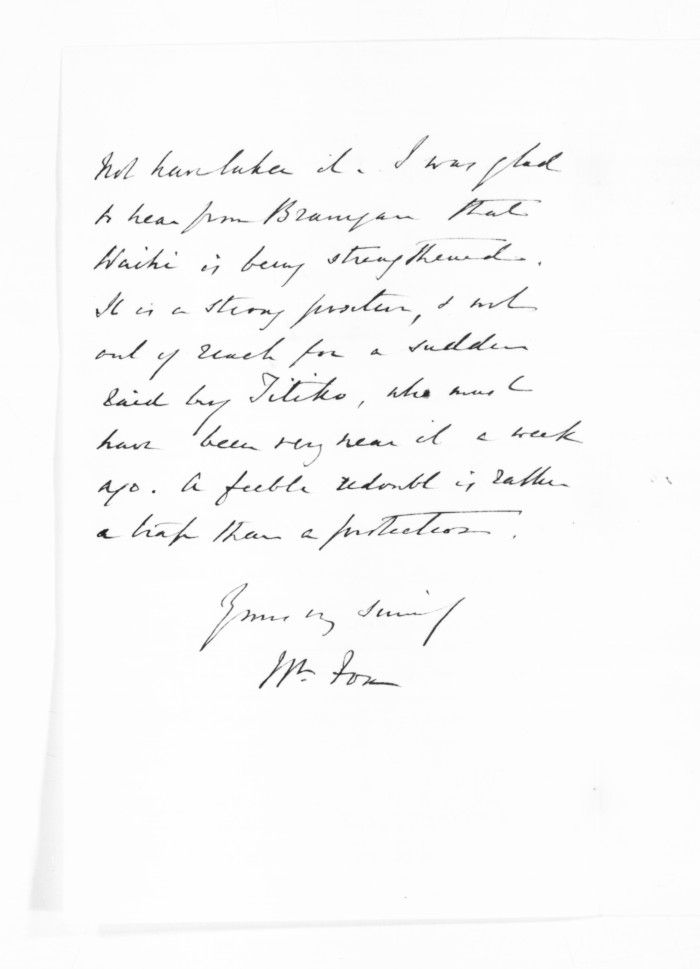 not have taken it. I was glad
to hear from Branigan that
Waihi is being strengthened.
It is a strong position, & not
out of reach for a sudden
raid by Titiko, who must
have been very near it a week
ago. A feeble redoubt is rather
a trap than a protection.
Yours very sincerely
Wm. Fox